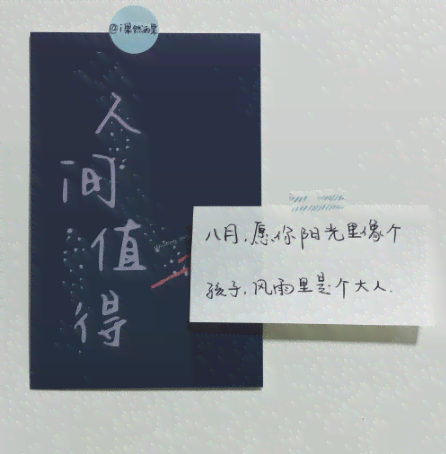 人
间
值
得
八月,愿你阳光里像个
孩子,风雨里是个大人.